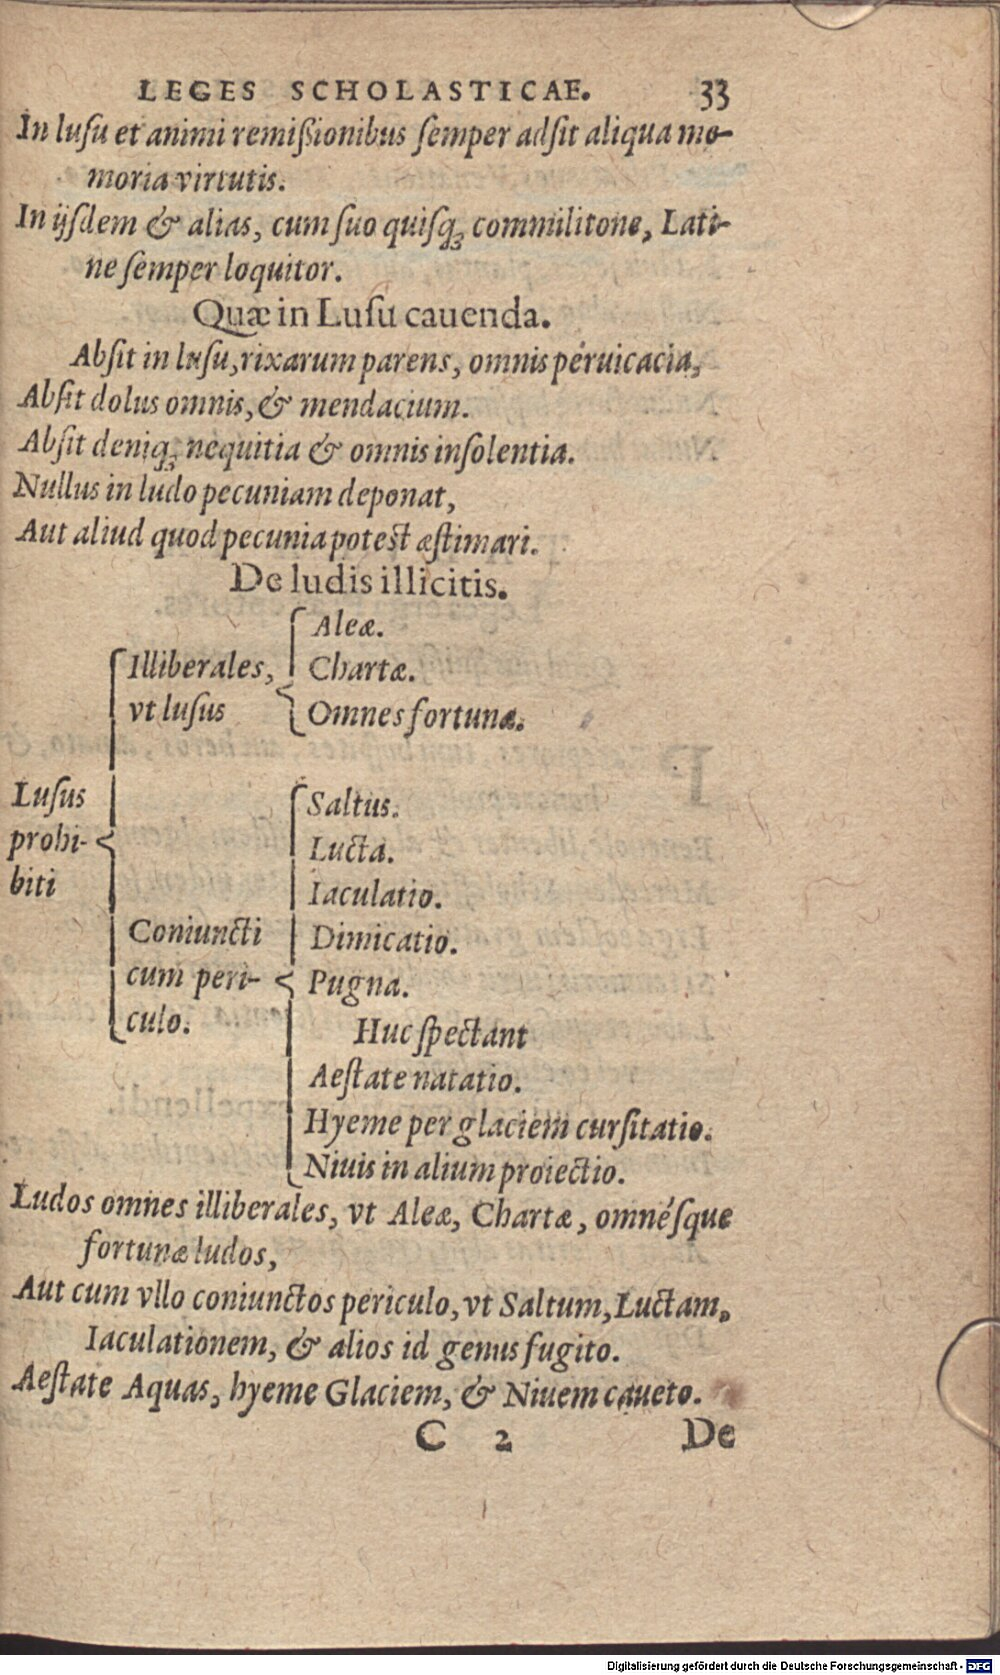 LEGES SCHOLASTICAE. 33
In luſu et animi remiſsionibus ſemper adſit aliqua me-
moria virtutis.
In ijſdem & alias, cum ſuo quiſq; commilitone, Lati-
ne ſemper loquitor.
Quæ in Luſu cauenda.
Abſit in luſu, rixarum parens, omnis péruicacia,
Abſit dolus omnis, & mendacium.
Abſit deniq; nequitia & omnis inſolentia.
Nullus in ludo pecuniam deponat,
Aut aliud quod pecunia poteſt æſtimari.
De ludis illicitis.
Luſus
prohi-
biti
Illiberales,
vt luſus
Aleæ.
Chartæ.
Omnes fortunæ.
Coniuncti
cum peri-
culo.
Saltus.
Lucta.
Iaculatio.
Dimicatio.
Pugna.
Huc ſpectant
Aeſtate natatio.
Hyeme per glaciem curſitatio.
Niuis in alium proiectio.
Ludos omnes illiberales, vt Aleæ, Chartæ, omnéſque
fortunæ ludos,
Aut cum vllo coniunctos periculo, vt Saltum, Luctam,
Iaculationem, & alios id genus fugito.
Aeſtate Aquas, hyeme Glaciem, & Niuem caueto.
C 2 De
Digitalisierung gefördert durch die Deutsche Forschungsgemeinschaft - DFG